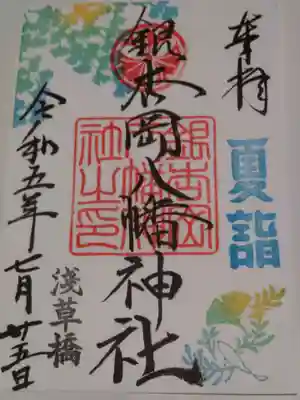 奉拝
夏詣
銀杏岡八幡神社
銀杏岡八幡神社之印
令和五年七月廿五日
浅草橋